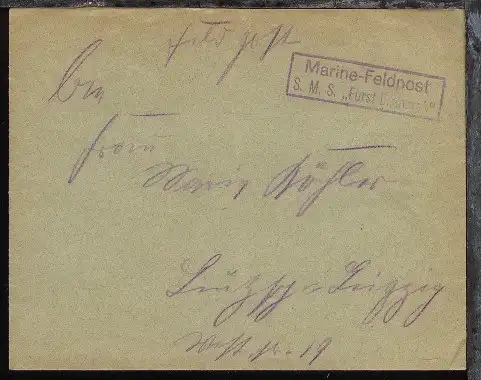 Feldpost
Marine-Feldpost
S. M. S. „Fürst Bismarck“
An
Frau
Marie Köhler
Leutzsch-Leipzig
19